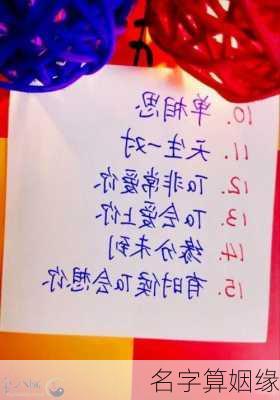 10. 单相思
11. 天生一对
12. Ta非常爱你
13. Ta会爱上你
14. 缘分未到
15. 有时候Ta会想你
名字算姻缘